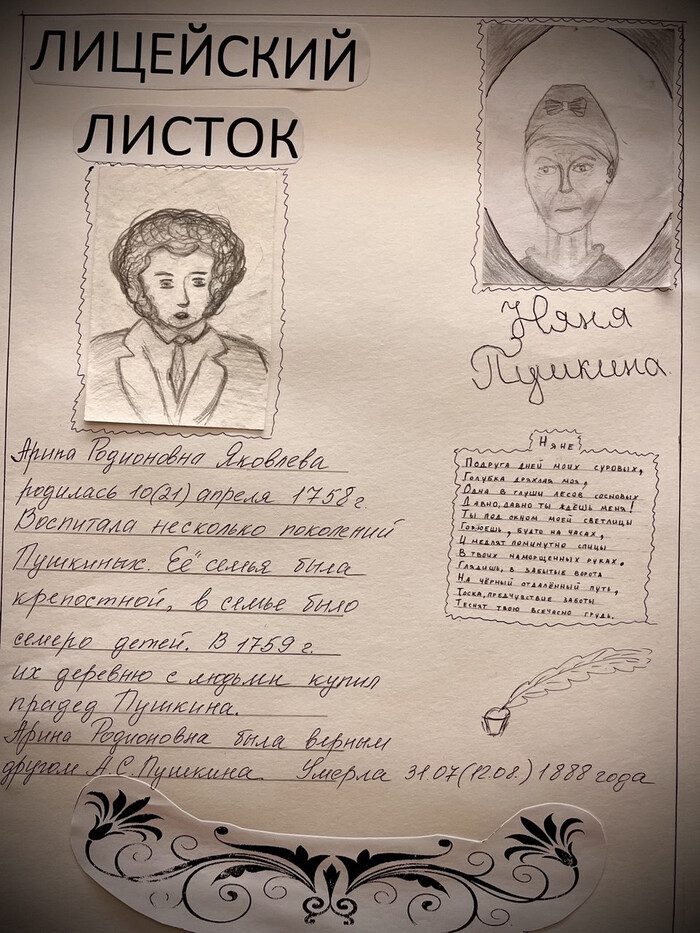 ЛИЦЕЙСКИЙ
ЛИСТОК
Няня
Пушкина
Арина Родионовна Яковлева
родилась 10(21) апреля 1758 г.
Воспитала несколько поколений
Пушкиных. Её семья была
крепостной, в семье было
семеро детей. В 1759 г.
их деревню с людьми купил
прадед Пушкина.
Арина Родионовна была верным
другом А.С.Пушкина. Умерла 31.07(12.08.) 1888 года
Няне
Подруга дней моих суровых,
Голубка дряхлая моя,
Одна в глуши лесов сосновых
Давно, давно ты ждёшь меня!
Ты под окном моей светлицы
Горюешь, будто на часах,
И медлят поминутно спицы
В твоих наморщенных руках.
Глядишь, в забытые ворота
На чёрный отдалённый путь,
Тоска, предчувствие заботы
Теснят твою всечасно грудь.